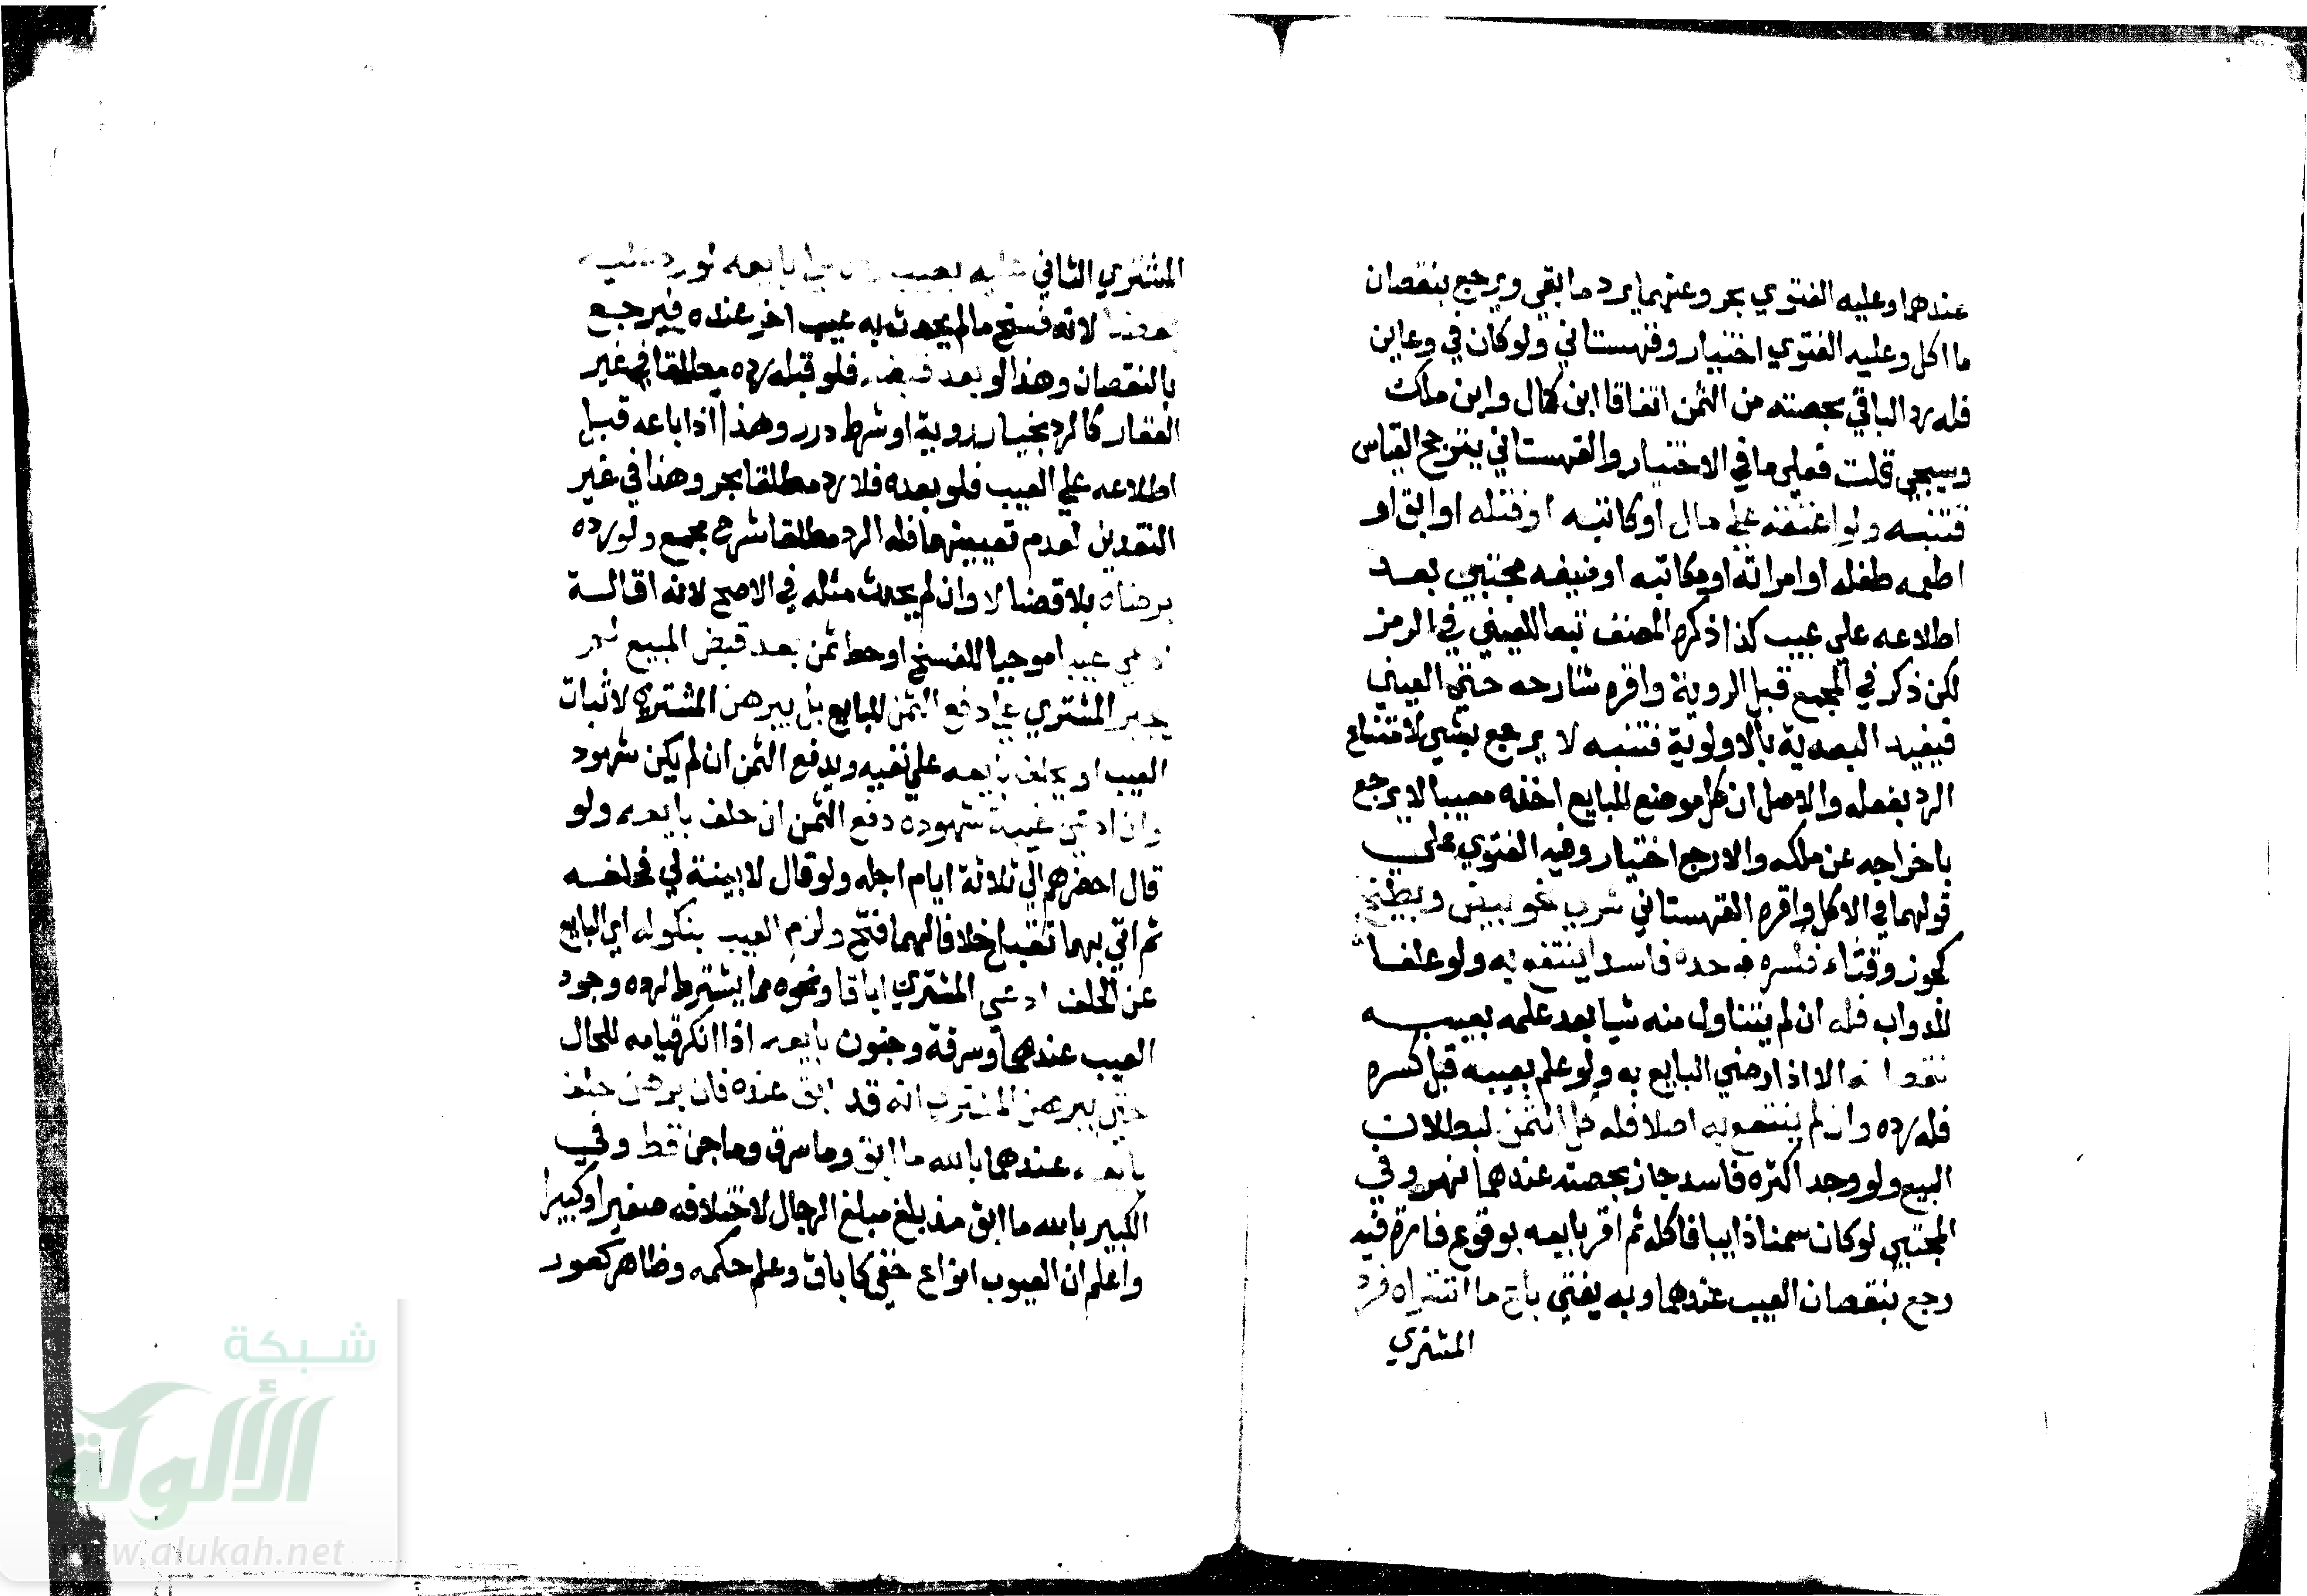 عندهما وعليه الفتوي بحر وعنهما يرد ما بقي ويرجع بنقصان
ما اكل وعليه الفتوي اختيار وقهستاني ولو كان في وعاين
فله رد الباقي بحصته من الثمن اتفاقا ابن كمال وابن ملك
وسيجي قلت فعلي ما في الاختيار والقهستاني يترجح القياس
فتنبه ولو اعتقه علي مال او كاتبه او قتله او ابق او
اطعمه طفله او امراته او مكاتبه او ضيفه مجتبي بعد
اطلاعه علي عيب كذا ذكره المصنف تبعا للعيني في الرمز
لكن ذكر في المجمع قبل الروية واقره شارحه حتي العيني
فيفيد البعدية بالاولوية فتنبه لا يرجع بشي لامتناع
الرد بفعله والاصل ان كل موضع للبايع اخذه معيبا لا يرجع
باخراجه عن ملكه والا رجع اختيار وفيه الفتوي علي
قولهما في الاكل واقره القهستاني شري نحو بيض وبطيخ
كجوز وقثاء فكسره فوجده فاسدا ينتفع به ولو علفا
للدواب فله ان لم يتناول منه شيا بعد علمه بعيبه
نقصانه الا اذا رضي البايع به ولو علم بعيبه قبل كسره
فله رده وان لم ينتفع به اصلا فله كل الثمن لبطلان
البيع ولو وجد اكثره فاسد جاز بحصته عندهما نهر وفي
المجتبي لو كان سمنا ذايبا فاكله ثم اقر بايعه بوقوع فارة فيه
رجع بنقصان العيب عندهما وبه يفتي باع ما اشتراه فرد
المشتري
المشتري الثاني عليه بعيب رده علي بايعه لو رد عليه
بقضا لانه فسخ ما لم يحدث به عيب اخر عنده فيرجع
بالنقصان وهذا لو بعد قبضه فلو قبله رده مطلقا في غير
العقار كالرد بخيار روية او شرط درر وهذا اذا باعه قبل
اطلاعه علي العيب فلو بعده فلا رد مطلقا بحر وهذا في غير
النقدين لعدم تعيينهما فله الرد مطلقا شرح مجمع ولو رده
برضاه بلا قضا لا وان لم يحدث مثله في الاصح لانه اقالة
ادعي عيبا موجبا للفسخ او حط ثمن بعد قبض المبيع لم
يجبر المشتري علي دفع الثمن للبايع بل يبرهن المشتري لاثبات
العيب او يحلف بايعه علي نفيه ويدفع الثمن ان لم يكن شهود
وان ادعي غيبة شهوده دفع الثمن ان حلف بايعه ولو
قال احضرهم الي ثلاثة ايام اجله ولو قال لا بينة لي فحلفه
ثم اتي بها تقبل خلافا لهما فتح ولزم العيب بنكوله اي البايع
عن الحلف ادعي المشتري اباقا ونحوه مما يشترط لرده وجود
العيب عندهما وسرقة وجنون بايعه اذا انكر قيامه للحال
حتي يبرهن المشتري انه قد ابق عنده فان برهن حلف
بايعه عندهما بالله ما ابق وما سرق وما جن قط وفي
الكبير بالله ما ابق مذ بلغ مبلغ الرجال لاختلافه صغيرا وكبيرا
واعلم ان العيوب انواع خفي كاباق وعلم حكمه وظاهر كعور
شبكة
الألوكة
www.alukah.net